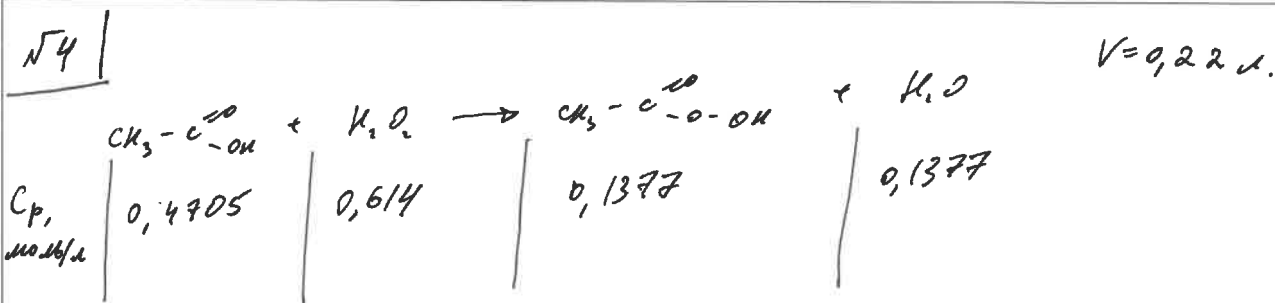 №4
V=0,22 л.
CH₃-C(=O)-OH + H₂O₂ → CH₃-C(=O)-O-OH + H₂O
Cр, моль/л 0,4705 0,614 0,1377 0,1377